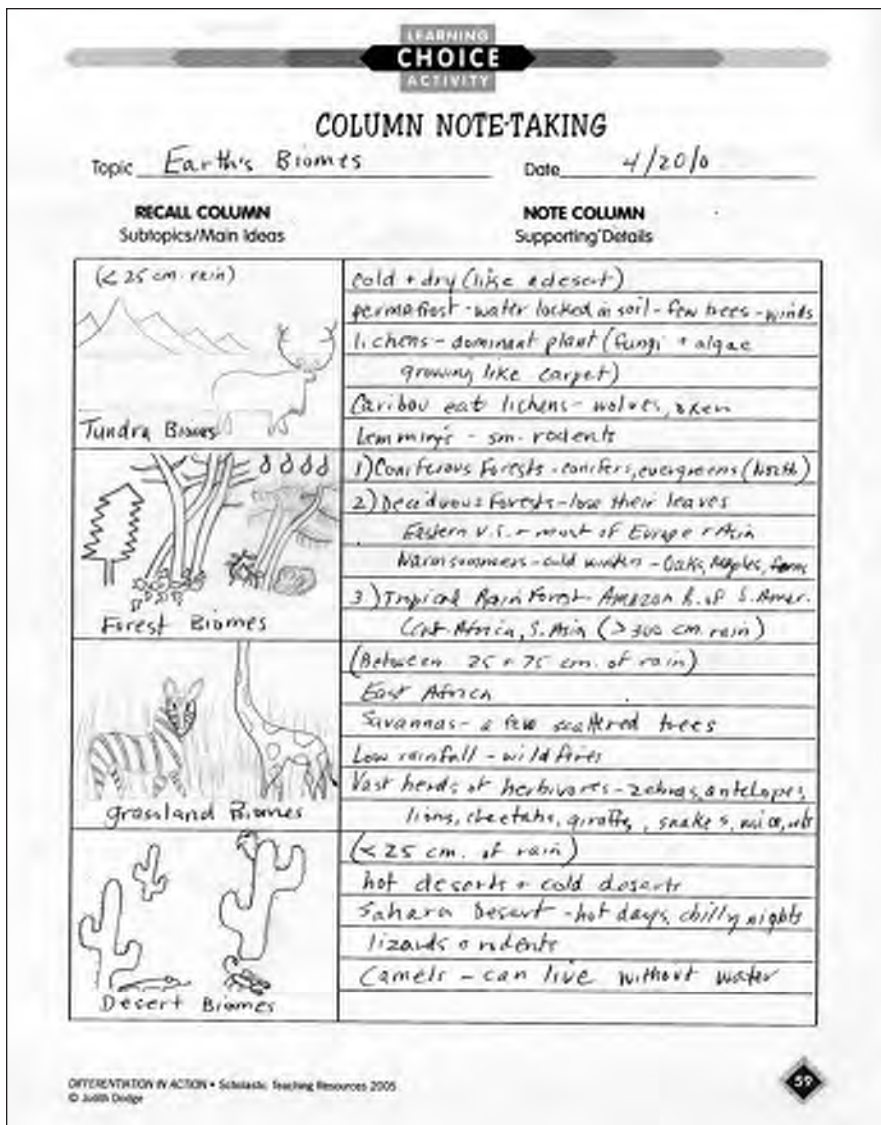 LEARNING
CHOICE
ACTIVITY
COLUMN NOTE-TAKING
Topic Earth's Biomes Date 4/20/0
RECALL COLUMN
Subtopics/Main Ideas
NOTE COLUMN
Supporting Details
(< 25 cm. rain)
Tundra Biomes
cold + dry (like a desert)
permafrost - water locked in soil - few trees - winds
lichens - dominant plant (fungi + algae
growing like carpet)
Caribou eat lichens - wolves, oxen
Lemmings - sm. rodents
Forest Biomes
1) Coniferous Forests - conifers, evergreens (North)
2) Deciduous Forests - lose their leaves
Eastern U.S. + most of Europe + Asia
Warm summers - cold winters - Oaks, Maples, ferns
3.) Tropical Rain Forest - Amazon R. of S. Amer.
Cent. Africa, S. Asia (> 300 cm. rain)
grassland Biomes
(Between 25 + 75 cm. of rain)
East Africa
Savannas - a few scattered trees
Low rainfall - wild fires
Vast herds of herbivores - zebras, antelopes,
lions, cheetahs, giraffe, snakes, mice,
Desert Biomes
(< 25 cm. of rain)
hot deserts + cold deserts
Sahara Desert - hot days, chilly nights
lizards + rodents
Camels - can live without water
DIFFERENTIATION IN ACTION • Scholastic Teaching Resources 2005
© Judith Dodge
59